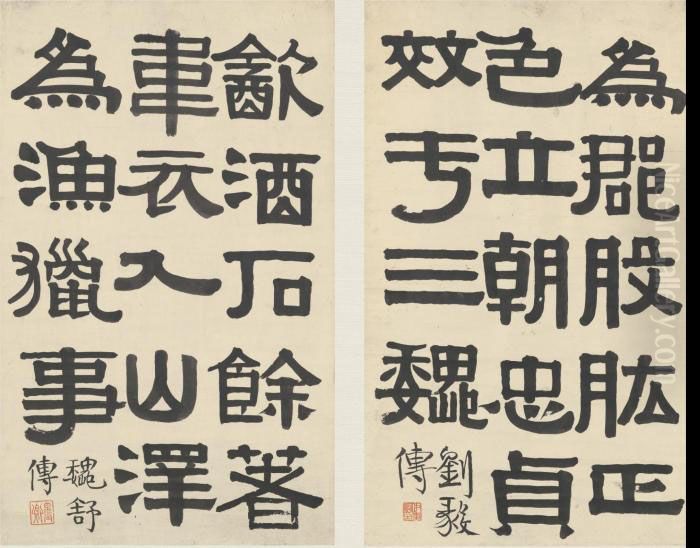 為郡股肱正
色立朝忠貞
效于三魏
劉毅
傳
飲酒石餘著
韋衣入山澤
為漁獵事
魏舒
傳
NiceArtGallery.com